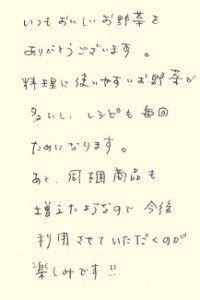 いつもおいしいお野菜を
ありがとうございます。
料理に使いやすいお野菜が
多いし、レシピも毎回
ためになります。
あと、同梱商品も
増えたようなので今後
利用させていただくのが
楽しみです!!